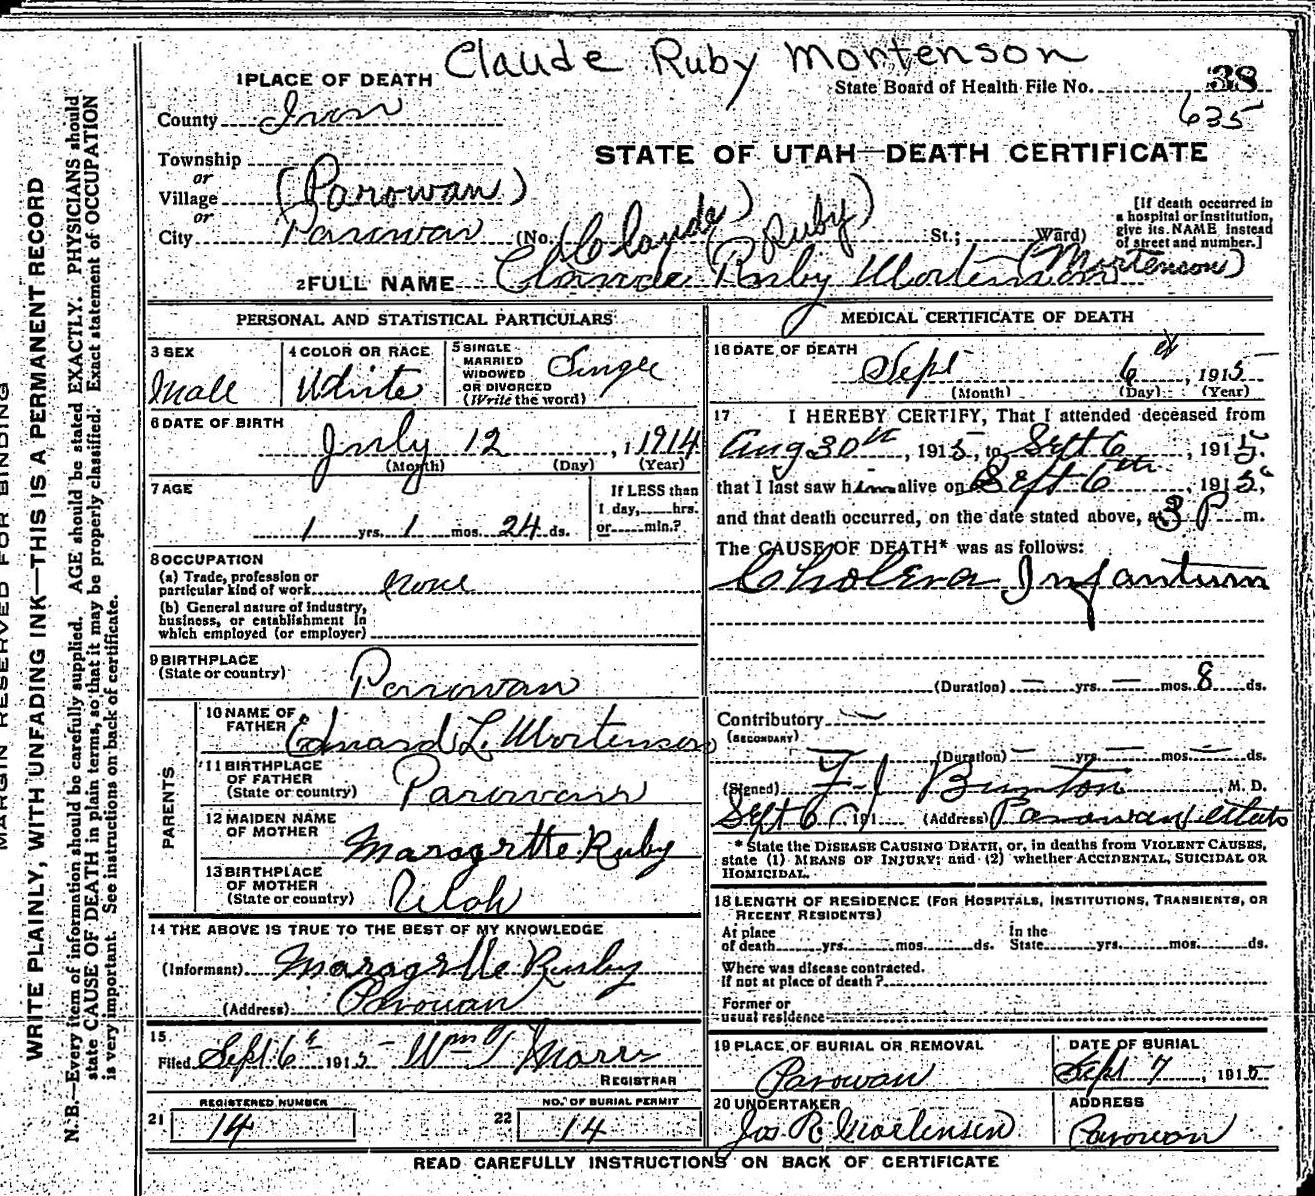 Claude Ruby Mortenson
1 PLACE OF DEATH
State Board of Health File No. 38
635
County Iron
STATE OF UTAH—DEATH CERTIFICATE
Township
or
Village (Parowan)
or
City Parowan (No. (Claude) (Ruby) St.; Ward)
[If death occurred in a hospital or institution, give its NAME instead of street and number.]
(Mortenson)
2 FULL NAME Claude Ruby Mortenson
PERSONAL AND STATISTICAL PARTICULARS
3 SEX
Male
4 COLOR OR RACE
White
5 SINGLE
MARRIED
WIDOWED
OR DIVORCED
(Write the word)
Single
6 DATE OF BIRTH
July 12, 1 1914
(Month) (Day) (Year)
7 AGE
1 yrs. 1 mos. 24 ds.
If LESS than
1 day, hrs.
or min.?
8 OCCUPATION
(a) Trade, profession or
particular kind of work none
(b) General nature of industry,
business, or establishment in
which employed (or employer)
9 BIRTHPLACE
(State or country) Parowan
PARENTS
10 NAME OF
FATHER Edward L. Mortenson
11 BIRTHPLACE
OF FATHER
(State or country) Parowan
12 MAIDEN NAME
OF MOTHER Maragrtte Ruby
13 BIRTHPLACE
OF MOTHER
(State or country) Utah
14 THE ABOVE IS TRUE TO THE BEST OF MY KNOWLEDGE
(Informant) Maragrtte Ruby
(Address) Parowan
15
Filed Sept. 6th 1915 Wm T Morris
REGISTRAR
21 REGISTERED NUMBER
14
22 NO. OF BURIAL PERMIT
14
MEDICAL CERTIFICATE OF DEATH
16 DATE OF DEATH
Sept 6th, 1915
(Month) (Day) (Year)
17 I HEREBY CERTIFY, That I attended deceased from
Aug 30th, 1915, to Sept 6, 1915.
that I last saw him alive on Sept 6th, 1915,
and that death occurred, on the date stated above, at 3 P m.
The CAUSE OF DEATH* was as follows:
Cholera Infantum
(Duration) — yrs. — mos. 8 ds.
Contributory —
(SECONDARY)
(Duration) — yrs. — mos. — ds.
(Signed) F-J Burton, M. D.
Sept 6, 191 (Address) Parowan Utah
* State the DISEASE CAUSING DEATH, or, in deaths from VIOLENT CAUSES,
state (1) MEANS OF INJURY; and (2) whether ACCIDENTAL, SUICIDAL OR
HOMICIDAL.
18 LENGTH OF RESIDENCE (FOR HOSPITALS, INSTITUTIONS, TRANSIENTS, OR
RECENT RESIDENTS)
At place
of death yrs. mos. ds.
In the
State yrs. mos. ds.
Where was disease contracted.
If not at place of death?
Former or
usual residence
19 PLACE OF BURIAL OR REMOVAL
Parowan
DATE OF BURIAL
Sept 7, 1915
20 UNDERTAKER
Jos R. Mortensen
ADDRESS
Parowan
READ CAREFULLY INSTRUCTIONS ON BACK OF CERTIFICATE
MARGIN RESERVED FOR BINDING
WRITE PLAINLY, WITH UNFADING INK—THIS IS A PERMANENT RECORD
N. B.—Every item of information should be carefully supplied. AGE should be stated EXACTLY. PHYSICIANS should
state CAUSE OF DEATH in plain terms, so that it may be properly classified. Exact statement of OCCUPATION
is very important. See instructions on back of certificate.